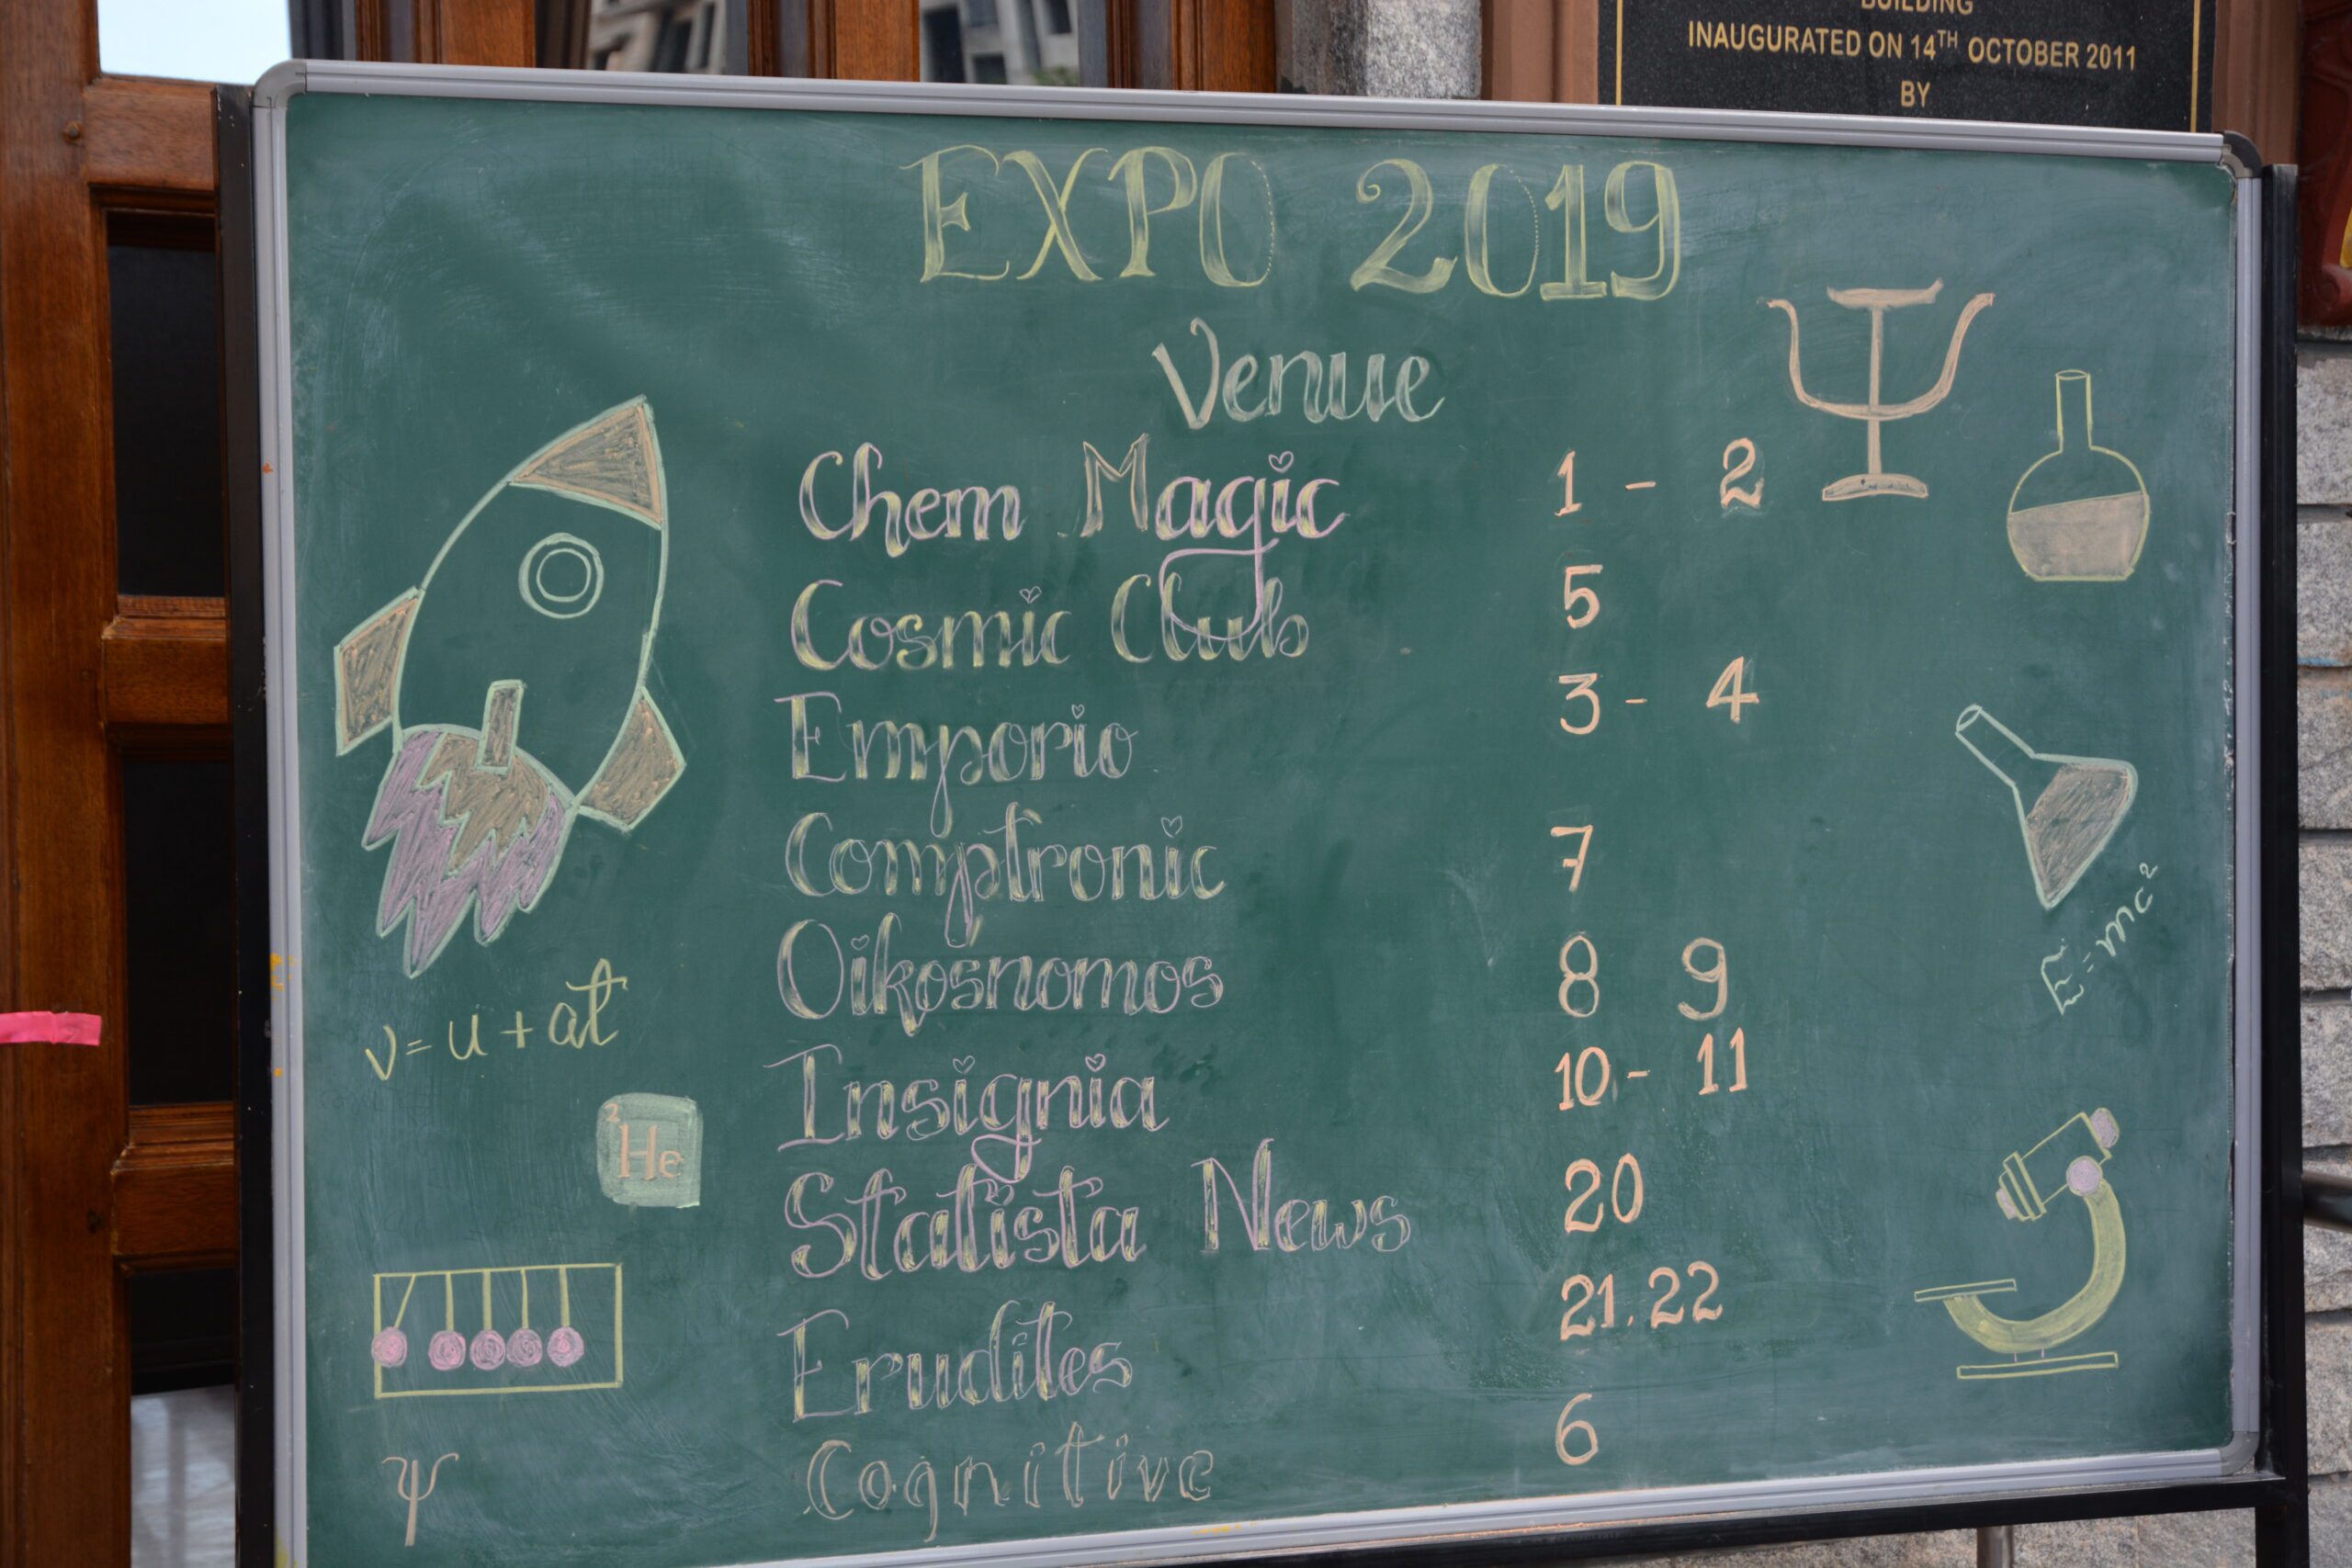 BUILDING
INAUGURATED ON 14TH OCTOBER 2011
BY
EXPO 2019
Venue
Chem Magic 1 - 2
Cosmic Club 5
Emporio 3 - 4
Comptronic 7
Oikosnomos 8 9
Insignia 10 - 11
Statista News 20
Erudites 21.22
Cognitive 6
v = u + at
2
He
Ψ
Ψ
E = mc²